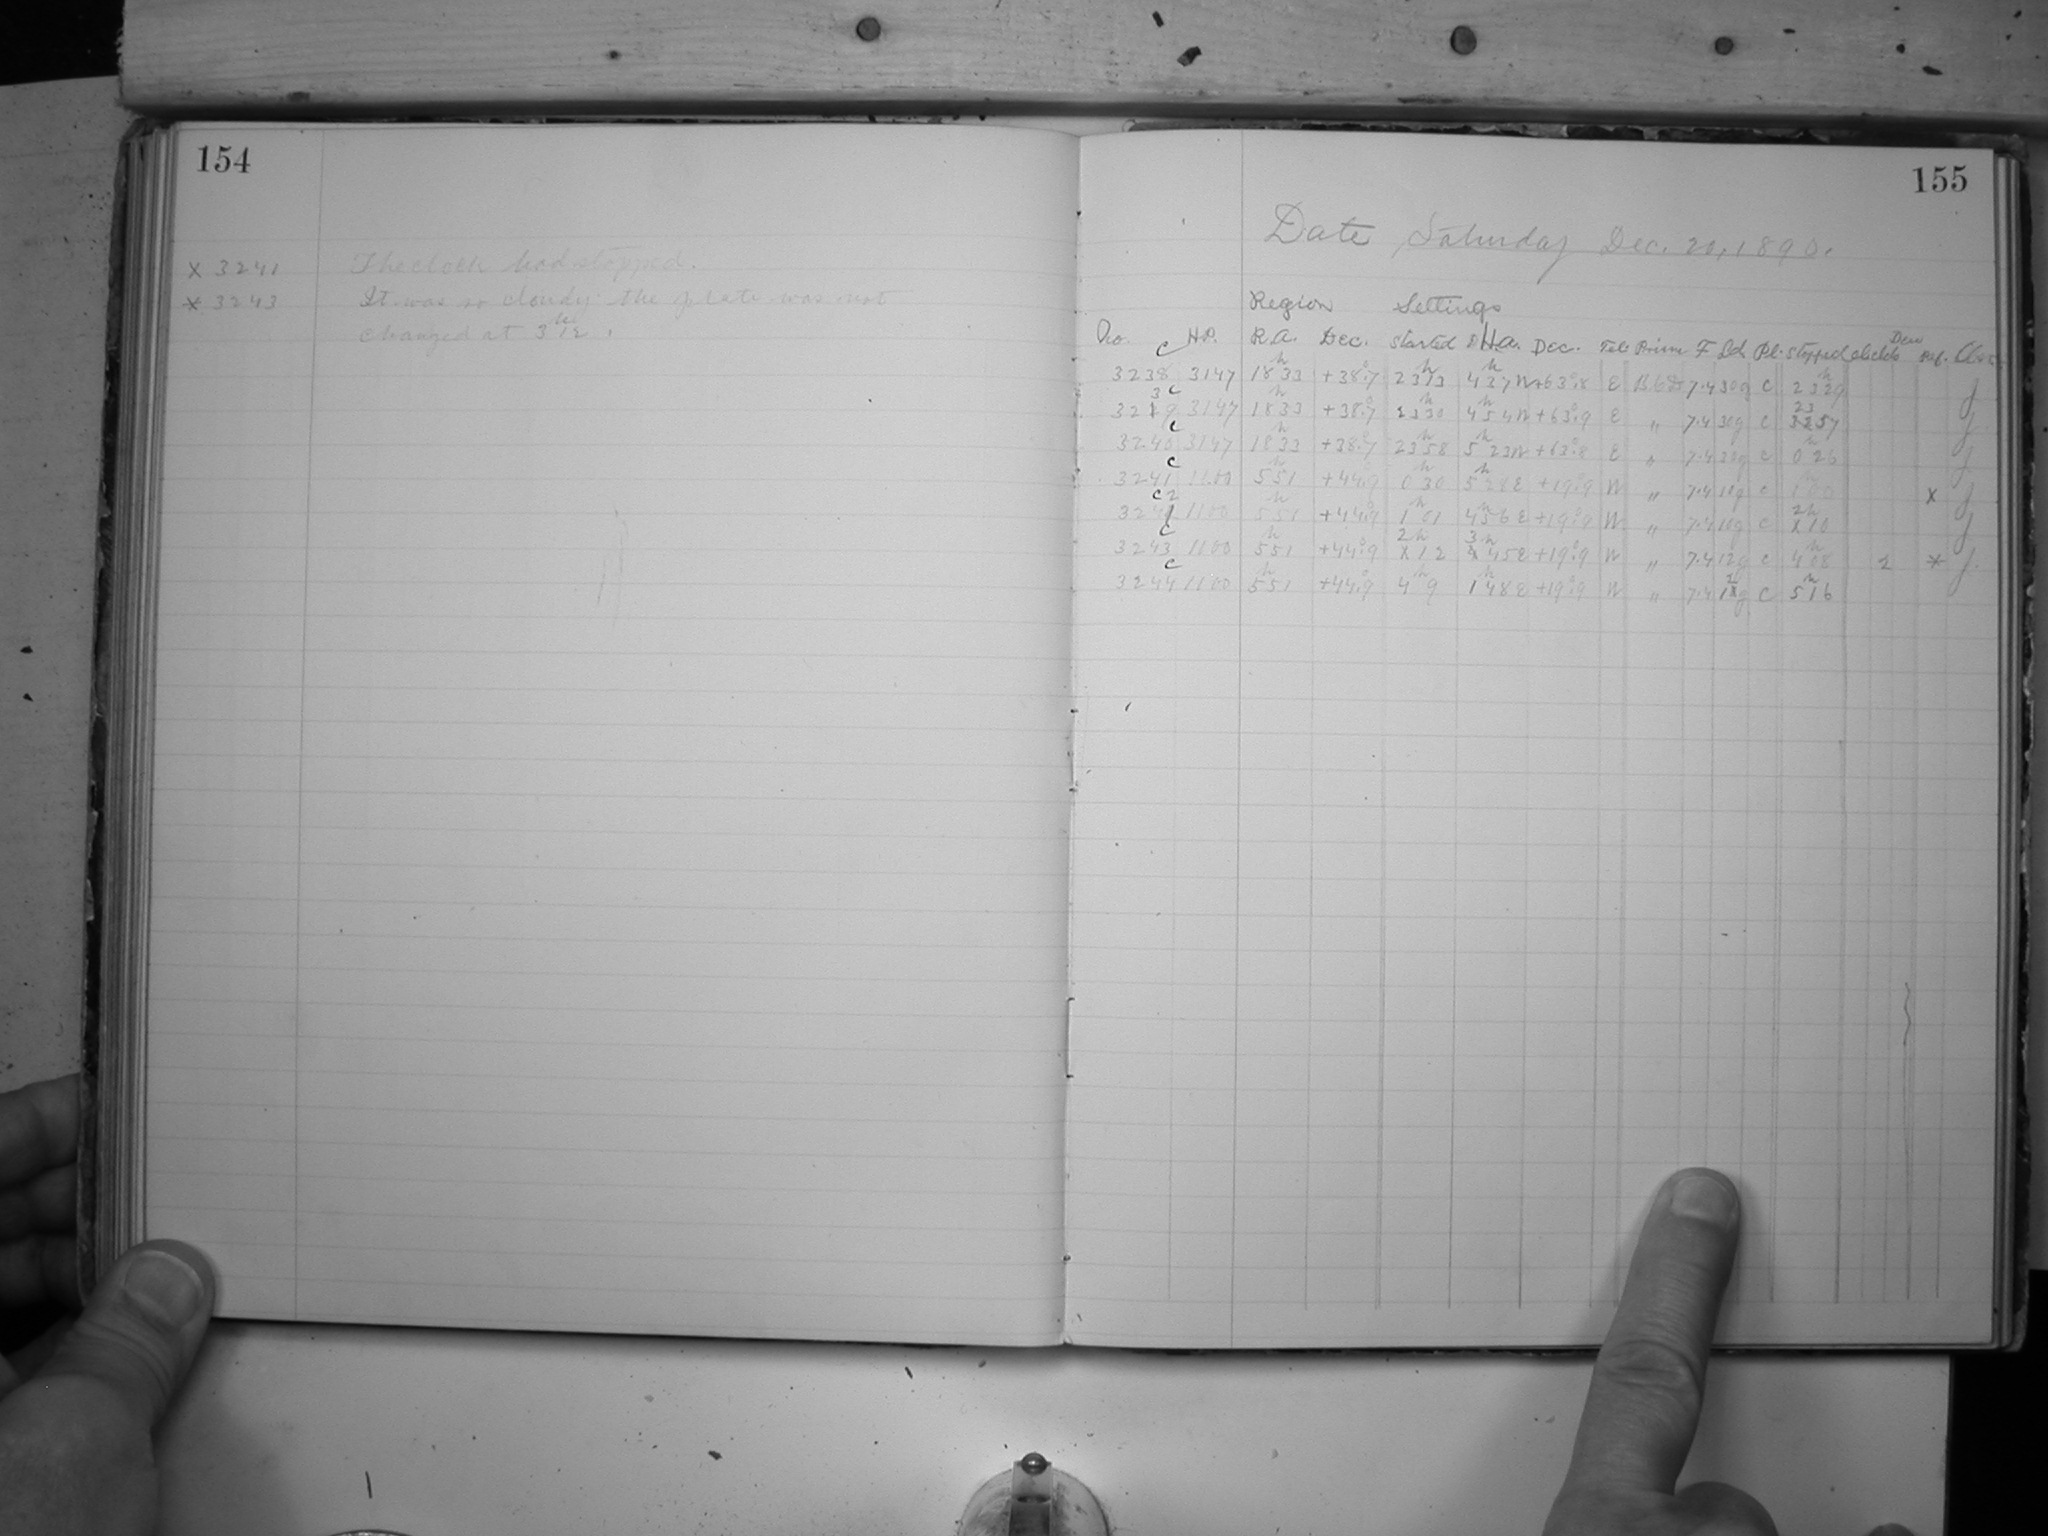 154
x 3241 The clock had stopped.
* 3243 It was so cloudy the plate was not
changed at 3h 12.
155
Date Saturday Dec. 20, 1890.
Region Settings
No. H.P. R.A. Dec. Started H.a. Dec. Tel. Prism F Sd. Pl. Stopped Clock Dew Ref. Obs.
C 3238 3147 18h33 +38°.7 23h13 4h37W +63°.8 E 7.4 30g C 23h29 J
C 3239 3147 18h33 +38°.7 23h30 4h54W +63°.9 E " 7.4 30g C 2357 J
C 3240 3147 18h33 +38°.7 23h58 5h23W +63°.8 E " 7.4 30g C 0h26 J
C 3241 1100 5h51 +44°.9 0h30 5h28E +19°.9 W " 7.4 10g C 1h00 x J
C 3242 1100 5h51 +44°.9 1h01 4h56E +19°.9 W " 7.4 10g C 2h10 J
C 3243 1100 5h51 +44°.9 2h12 3h45E +19°.9 W " 7.4 12g C 4h08 2 * J.
C 3244 1100 5h51 +44°.9 4h9 1h48E +19°.9 W " 7.4 C 5h16